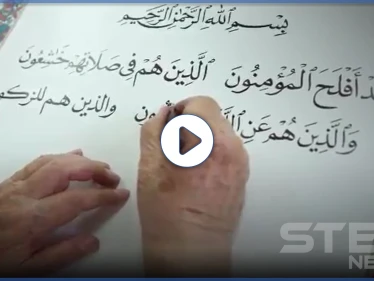 بِسْمِ اللهِ الرَّحْمٰنِ الرَّحِيْمِ
أَفْلَحَ الْمُؤْمِنُونَ الَّذِينَ هُمْ فِي صَلَاتِهِمْ خَشِعُونَ
وَالَّذِينَ هُمْ عَنِ
والذين هم للزكو
STE
NE